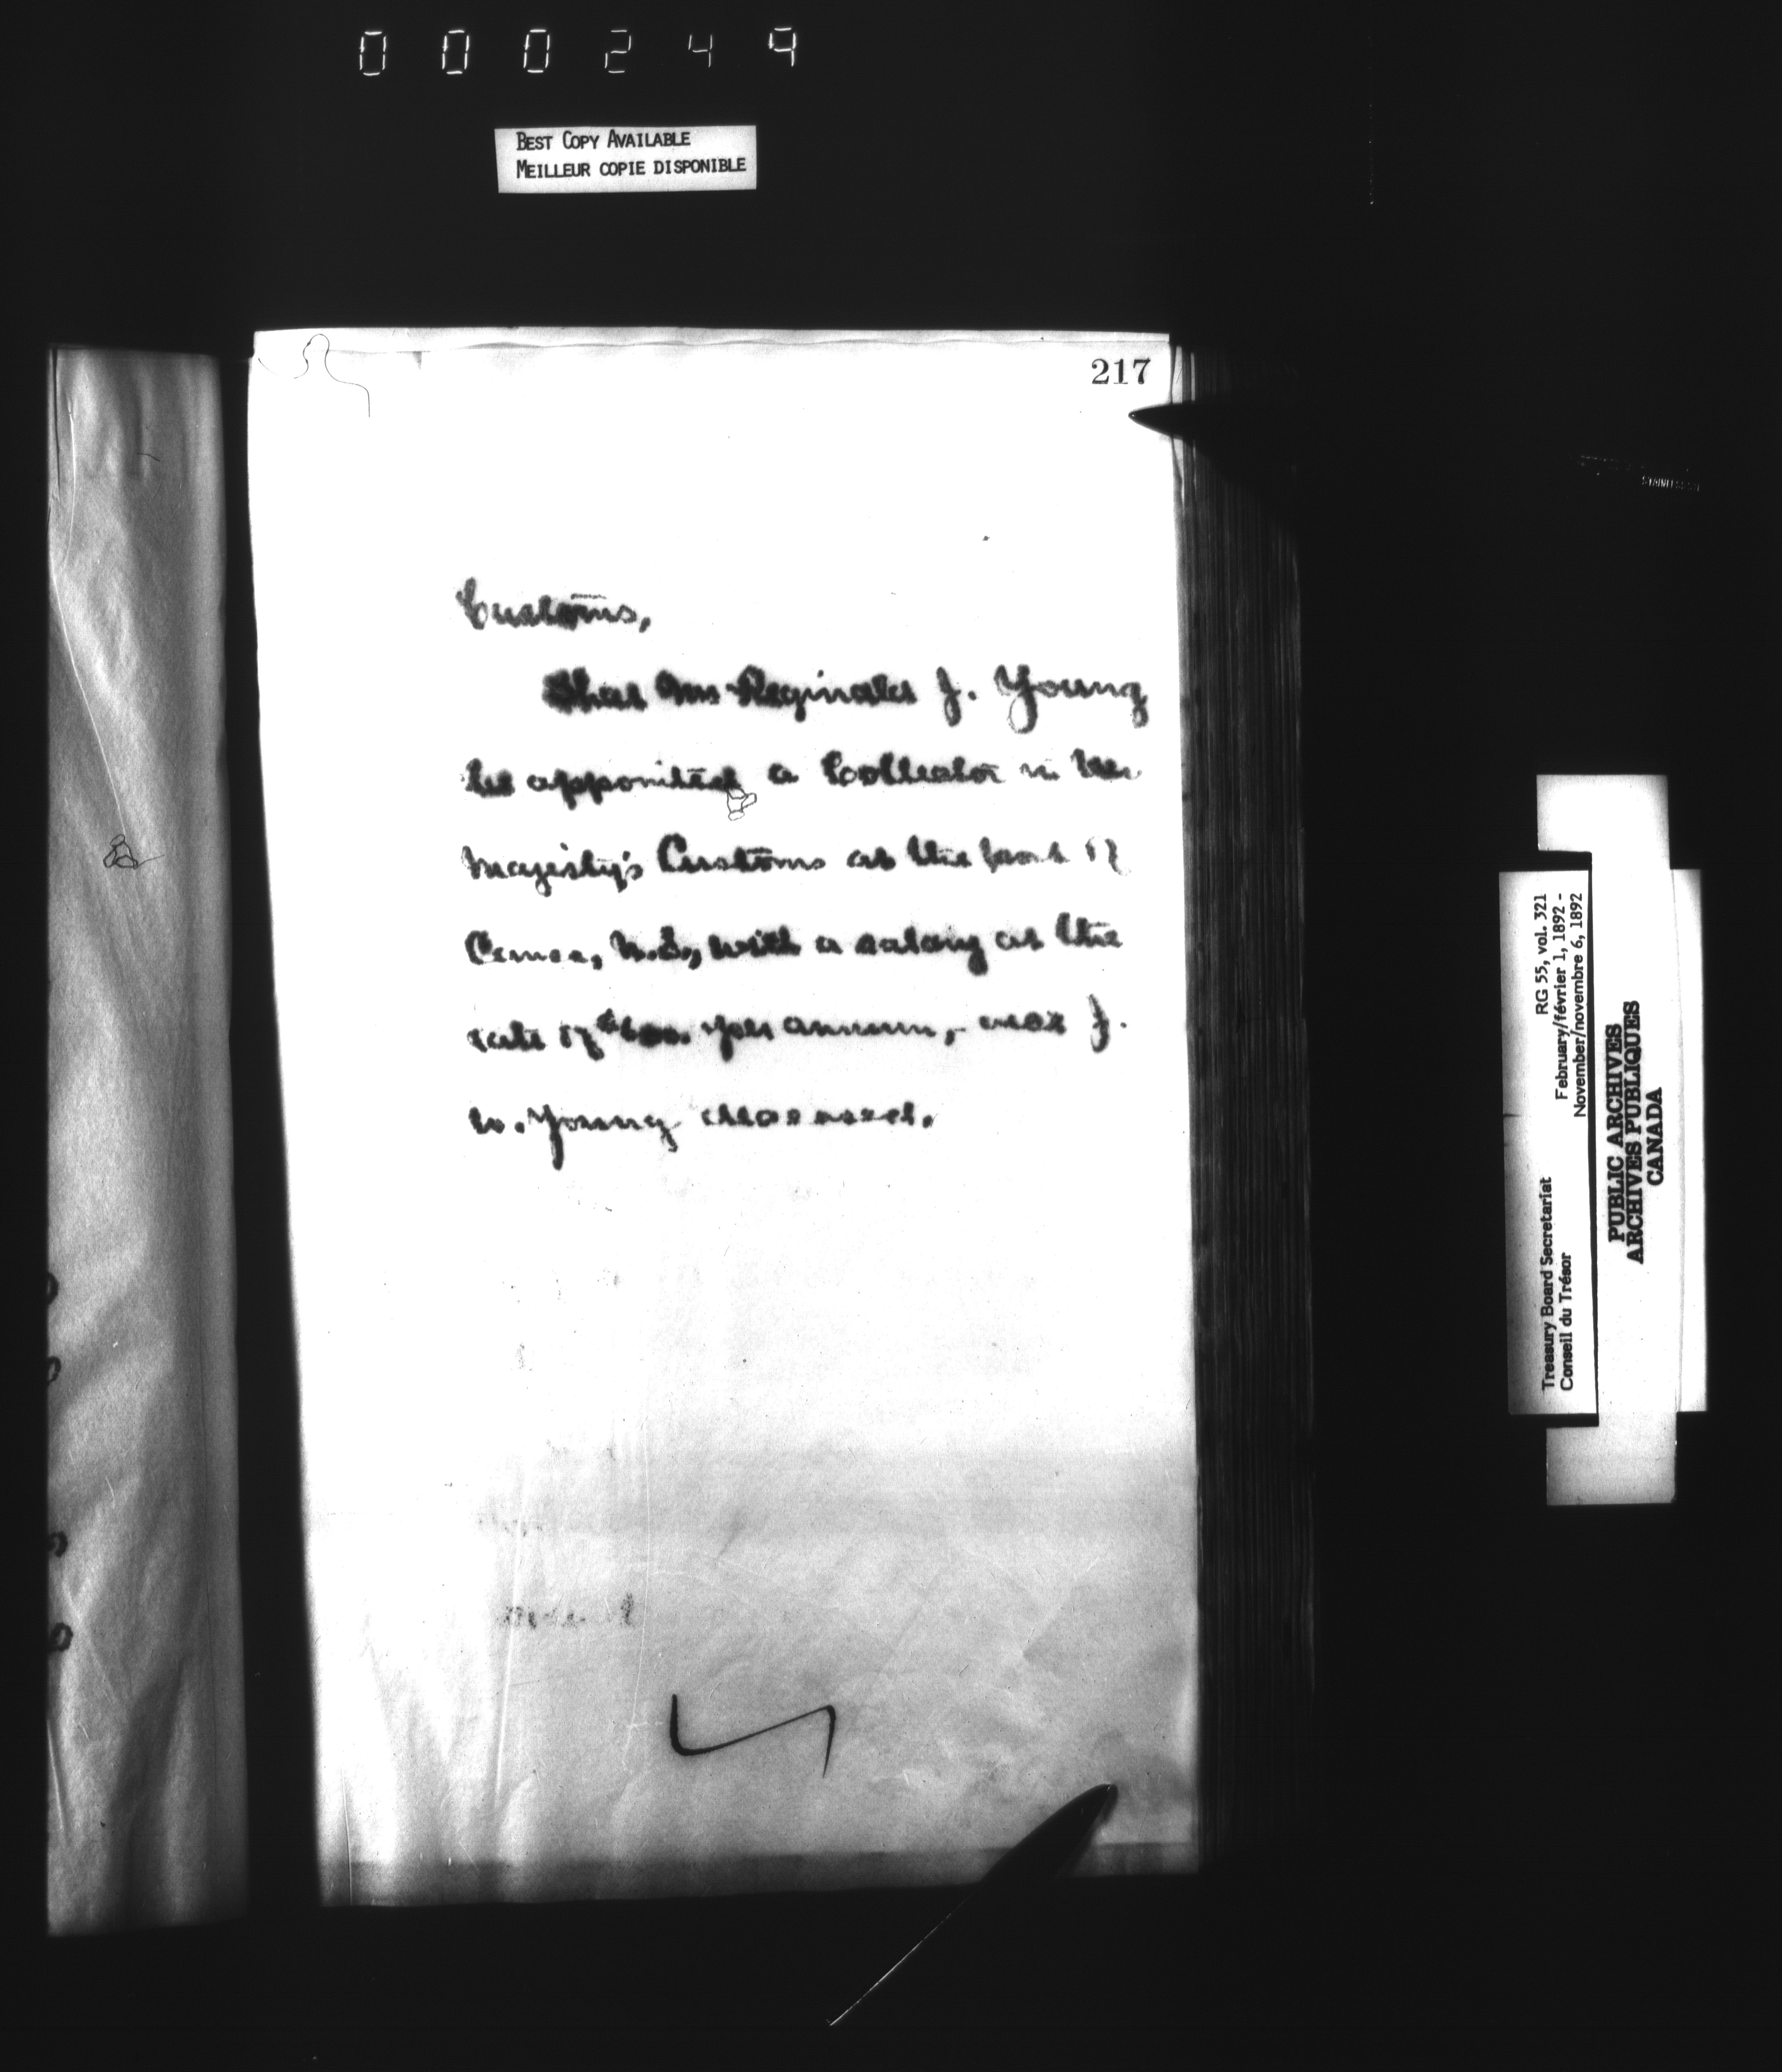 000249
BEST COPY AVAILABLE
MEILLEUR COPIE DISPONIBLE
217
Customs,
That Mr Reginald J. Young
be appointed a Collector in Her
Majesty's Customs at the port of
N.S., with a salary at the
rate of $600. per annum, - vice J.
W. Young deceased.
RG 55, vol. 321
February/février 1, 1892 -
November/novembre 6, 1892
Treasury Board Secretariat
Conseil du Trésor
PUBLIC ARCHIVES
ARCHIVES PUBLIQUES
CANADA